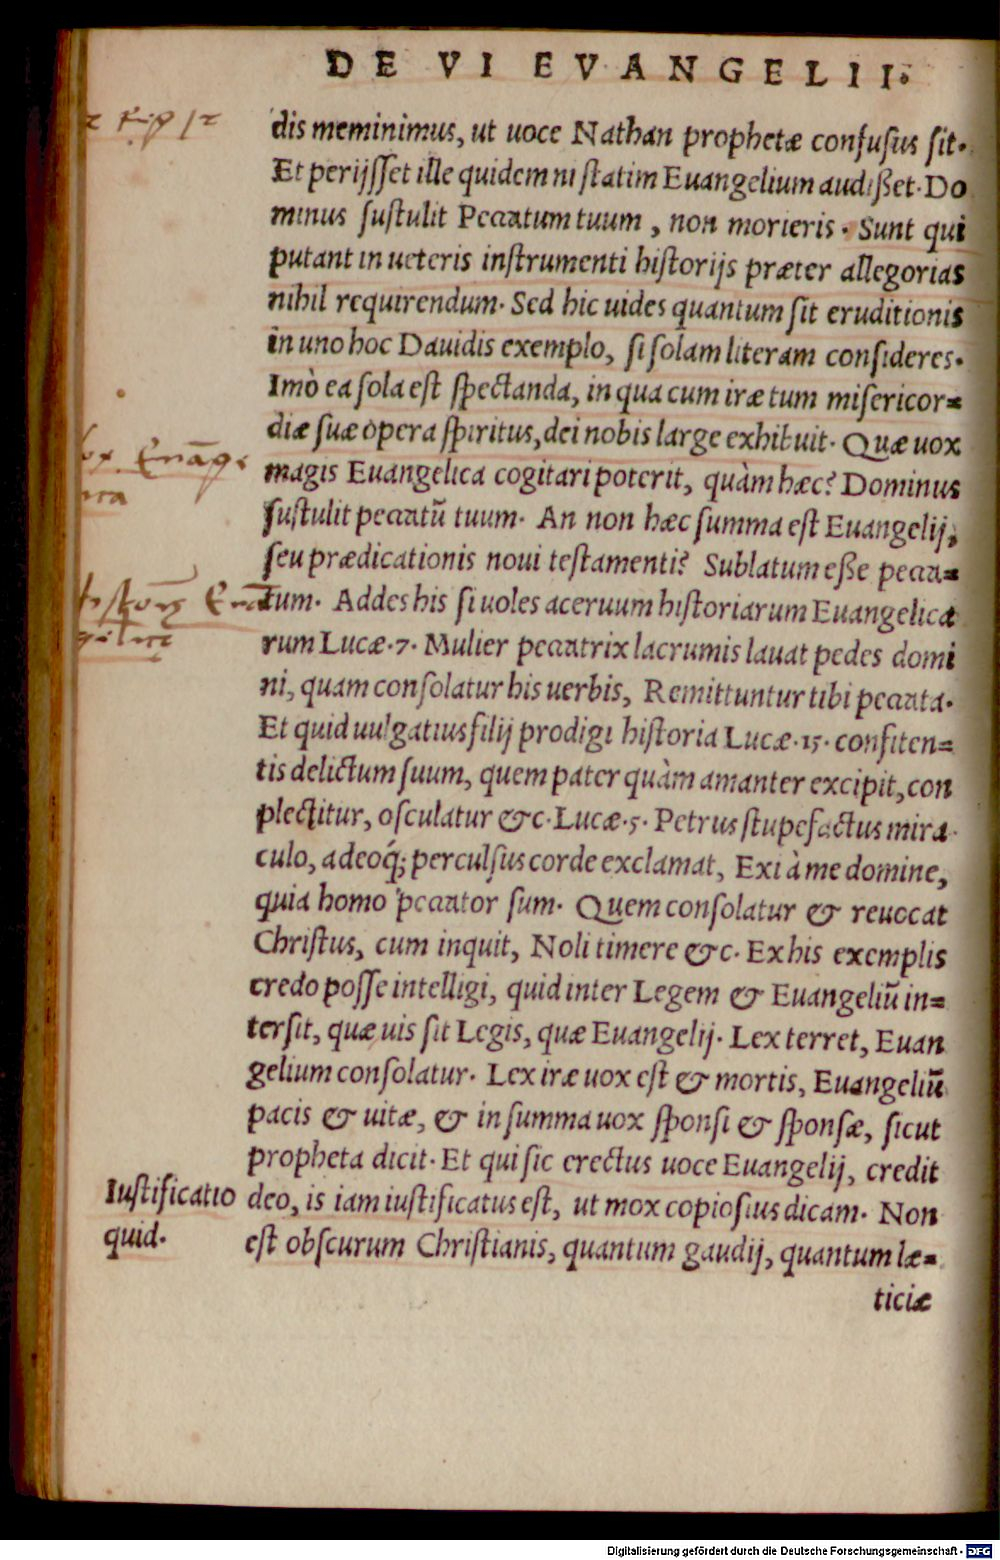 DE VI EVANGELII.
dis meminimus, ut uoce Nathan prophetæ confusus sit.
Et perijsset ille quidem ni statim Euangelium audißet. Do
minus sustulit Peccatum tuum, non morieris. Sunt qui
putant in ueteris instrumenti historijs præter allegorias
nihil requirendum. Sed hic uides quantum sit eruditionis
in uno hoc Dauidis exemplo, si solam literam consideres.
Imò ea sola est spectanda, in qua cum iræ tum misericor=
diæ suæ opera spiritus, dei nobis large exhibuit. Quæ uox
magis Euangelica cogitari poterit, quàm hæc? Dominus
sustulit peccatū tuum. An non hæc summa est Euangelij,
seu prædicationis noui testamenti? Sublatum eße pecca=
tum. Addes his si uoles aceruum historiarum Euangelica
rum Lucæ.7. Mulier peccatrix lacrumis lauat pedes domi
ni, quam consolatur his uerbis, Remittuntur tibi peccata.
Et quid uulgatius filij prodigi historia Lucæ.15. confiten=
tis delictum suum, quem pater quàm amanter excipit, con
plectitur, osculatur &c. Lucæ.5. Petrus stupefactus mira
culo, adeoq́; perculsus corde exclamat, Exi à me domine,
quia homo peccator sum. Quem consolatur & reuocat
Christus, cum inquit, Noli timere &c. Ex his exemplis
credo posse intelligi, quid inter Legem & Euangeliū in=
tersit, quæ uis sit Legis, quæ Euangelij. Lex terret, Euan
gelium consolatur. Lex iræ uox est & mortis, Euangeliū
pacis & uitæ, & in summa uox sponsi & sponsæ, sicut
propheta dicit. Et qui sic erectus uoce Euangelij, credit
Iustificatio
quid.
deo, is iam iustificatus est, ut mox copiosius dicam. Non
est obscurum Christianis, quantum gaudij, quantum læ=
ticiæ
Digitalisierung gefördert durch die Deutsche Forschungsgemeinschaft - DFG